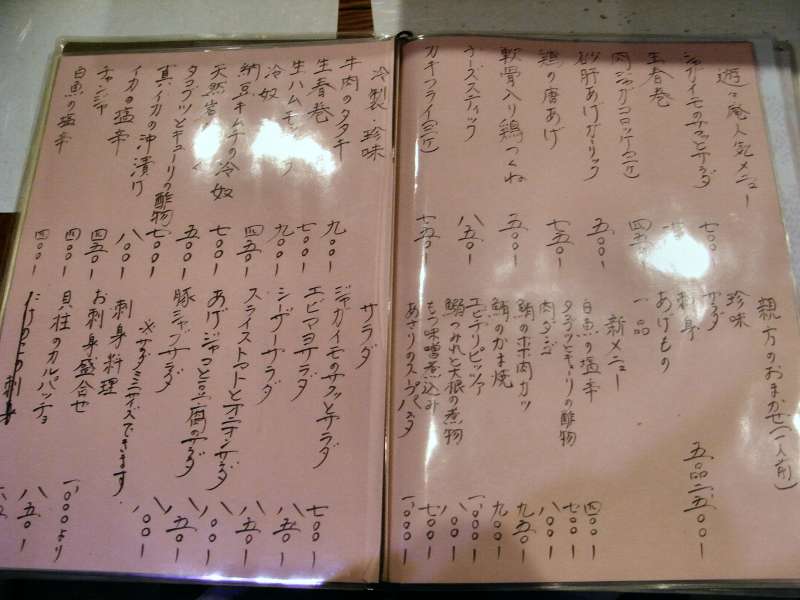 遊々庵人気メニュー
ジャガイモのサクッとサラダ 七〇〇ー
生春巻
肉ジャガコロッケ(二ケ) 四五〇ー
砂肝あげガーリック 五〇〇ー
鶏の唐あげ 七五〇ー
軟骨入り鶏つくね 五〇〇ー
チーズスティック 八五〇ー
カキフライ(三ケ) 七五〇ー
親方のおまかせ(一人前)
珍味
サラダ
刺身
あげもの
一品
五品二、五〇〇ー
新メニュー
白魚の塩辛 四〇〇ー
タコブツとキューリの酢物 七〇〇ー
肉ダンゴ 八〇〇ー
鮪の赤肉カツ 九五〇ー
鮪のかま焼 九〇〇ー
エビチリピッツァ 一、〇〇〇ー
鰯つみれと大根の煮物 八〇〇ー
もつ味噌煮込み 七〇〇ー
あさりのスープパスタ 一、〇〇〇ー
冷製・珍味
牛肉のタタキ 九〇〇ー
生春巻 七〇〇ー
生ハム 九〇〇ー
冷奴 四五〇ー
納豆キムチの冷奴 七〇〇ー
天然岩 五〇〇ー
タコブツとキューリの酢物 七〇〇ー
真イカの沖漬け 八〇〇ー
イカの塩辛 四五〇ー
チャンジャ 四〇〇ー
白魚の塩辛 四〇〇ー
サラダ
ジャガイモのサクッとサラダ 七〇〇ー
エビマヨサラダ 八〇〇ー
シーザーサラダ 八五〇ー
スライストマトとオニオンサラダ 八五〇ー
あげジャコと豆腐のサラダ 八〇〇ー
豚シャブサラダ 八五〇ー
※サラダミニサイズできます。
刺身料理
お刺身盛合せ 一、〇〇〇より
貝柱のカルパッチョ 八五〇ー